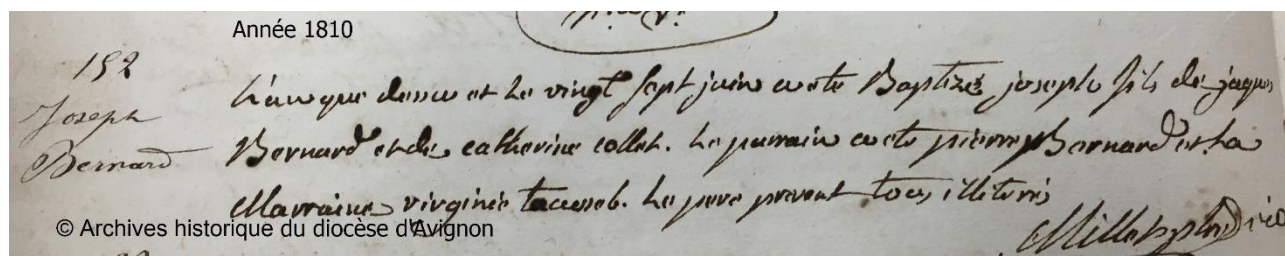 Année 1810
192
Joseph
Bernard
L'an que dessu et le vingt sept juin a eté Baptizé joseph fils de jaques
Bernard et de catherine collet. Le parrain a eté pierre Bernard et La
Marraine virginie . Le pere present tous illiterés
© Archives historique du diocèse d'Avignon